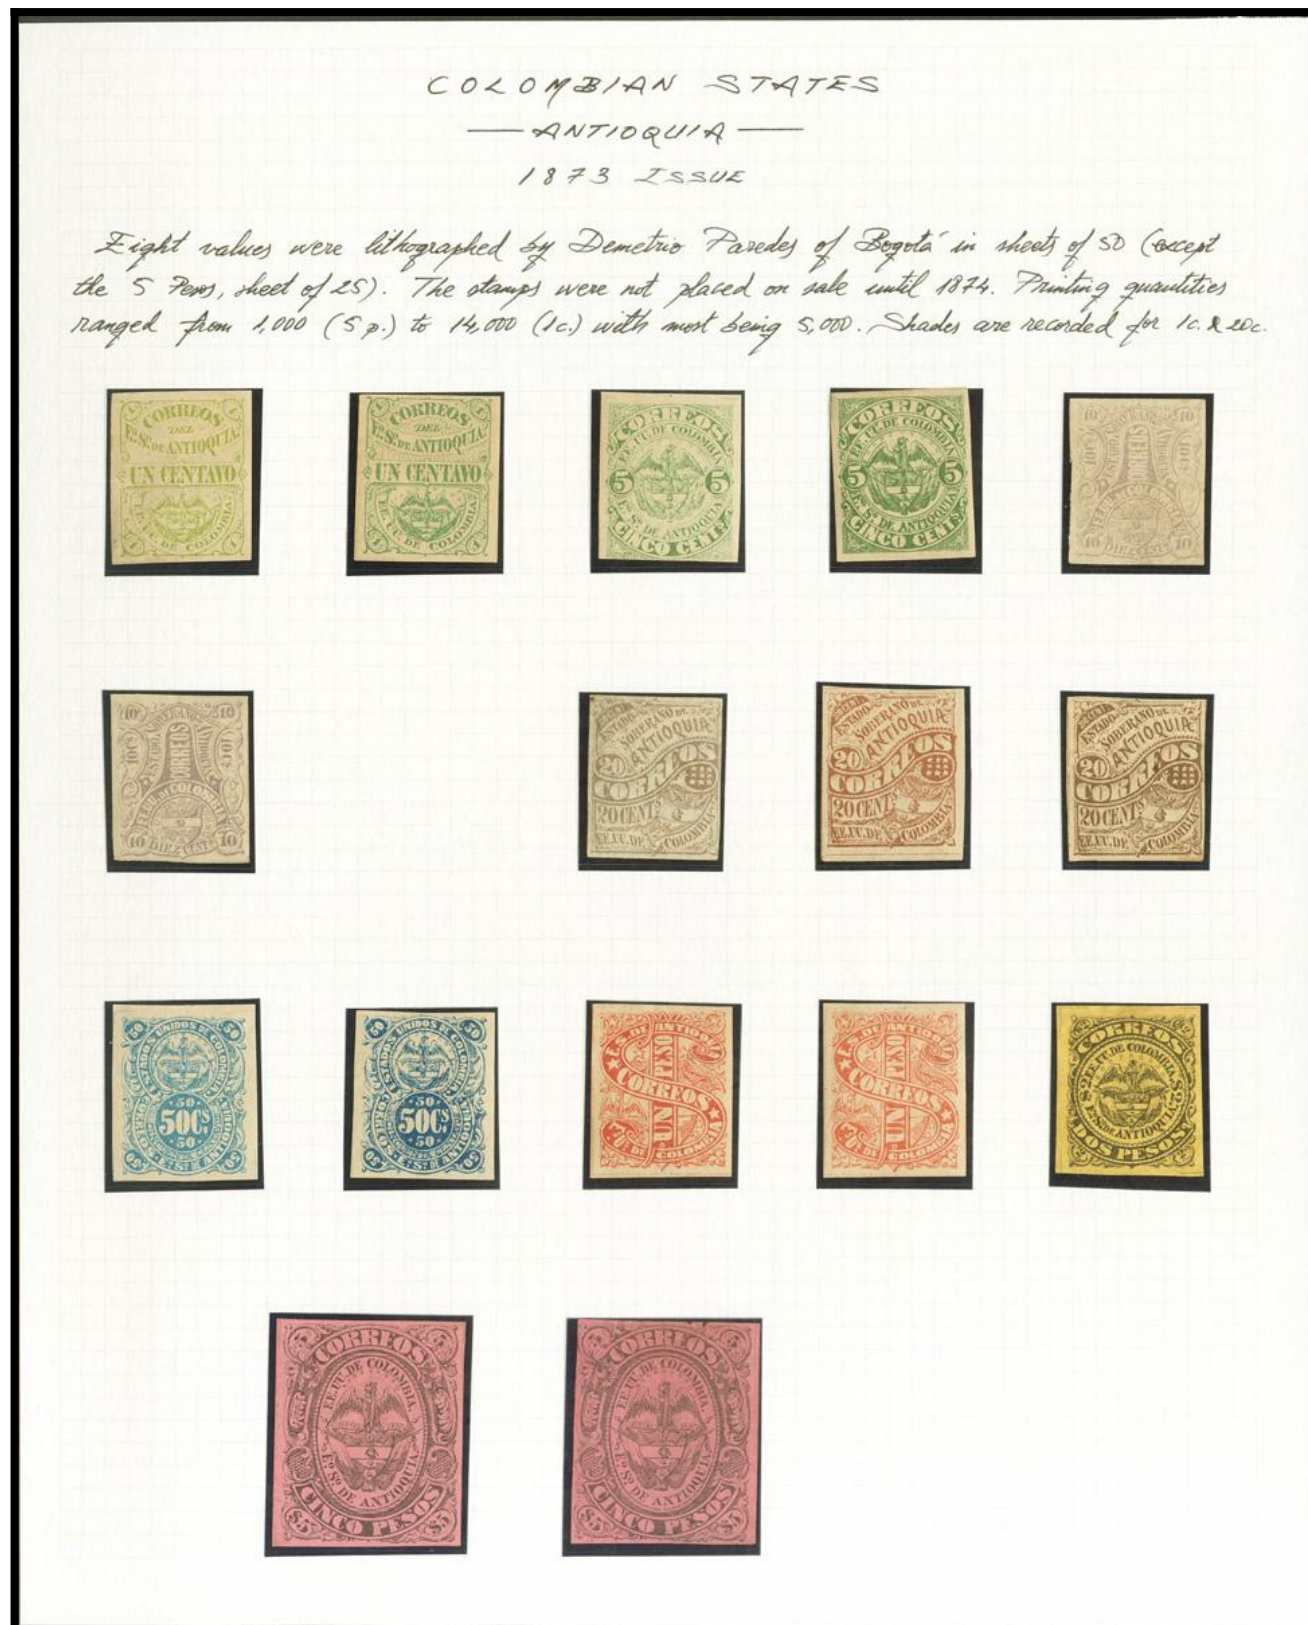 COLOMBIAN STATES
— ANTIOQUIA —
1873 ISSUE
Eight values were lithographed by Demetrio Paredes of Bogotá in sheets of 50 (except
the 5 Pesos, sheet of 25). The stamps were not placed on sale until 1874. Printing quantities
ranged from 1,000 (5 p.) to 14,000 (1c.) with most being 5,000. Shades are recorded for 1c. & 20c.
1 1
CORREOS
DEL
Eo. So. DE ANTIOQUIA.
UN CENTAVO
EE. U. DE COLOMBIA
1 1
1 1
CORREOS
DEL
Eo. So. DE ANTIOQUIA.
UN CENTAVO
EE. U. DE COLOMBIA
1 1
CORREOS
EE. UU. DE COLOMBIA
5 5
Eo. So. DE ANTIOQUIA
CINCO CENTS
CORREOS
EE. UU. DE COLOMBIA
5 5
Eo. So. DE ANTIOQUIA
CINCO CENTS
10 10
ESTADO SOBERANO DE ANTIOQUIA
10C 10C
CORREOS
EE.UU. DE COLOMBIA
10 DIEZ CENTS 10
10 10
ESTADO SOBERANO DE ANTIOQUIA
10C 10C
CORREOS
EE.UU. DE COLOMBIA
10 DIEZ CENTS 10
ESTADO
SOBERANO DE
ANTIOQUIA
20
CORREOS
20 CENTS
EE.UU. DE COLOMBIA
ESTADO
SOBERANO DE
ANTIOQUIA
20
CORREOS
20 CENTS
EE.UU. DE COLOMBIA
ESTADO
SOBERANO DE
ANTIOQUIA
20
CORREOS
20 CENTS
EE.UU. DE COLOMBIA
50 50
ESTADOS UNIDOS DE COLOMBIA
·50·
50CS
·50·
CORREOS Eo. So. DE ANTIOQUIA
50 50
50 50
ESTADOS UNIDOS DE COLOMBIA
·50·
50CS
·50·
CORREOS Eo. So. DE ANTIOQUIA
50 50
E.S. DE ANTIOQUIA
UN PESO
CORREOS
E.U. DE COLOMBIA
E.S. DE ANTIOQUIA
UN PESO
CORREOS
E.U. DE COLOMBIA
$2 $2
CORREOS
EE.UU. DE COLOMBIA.
$2 $2
Eo. So. DE ANTIOQUIA
DOS PESOS
$5 $5
CORREOS
EE.UU. DE COLOMBIA.
Eo. So. DE ANTIOQUIA.
CINCO PESOS
$5 $5
$5 $5
CORREOS
EE.UU. DE COLOMBIA.
Eo. So. DE ANTIOQUIA.
CINCO PESOS
$5 $5